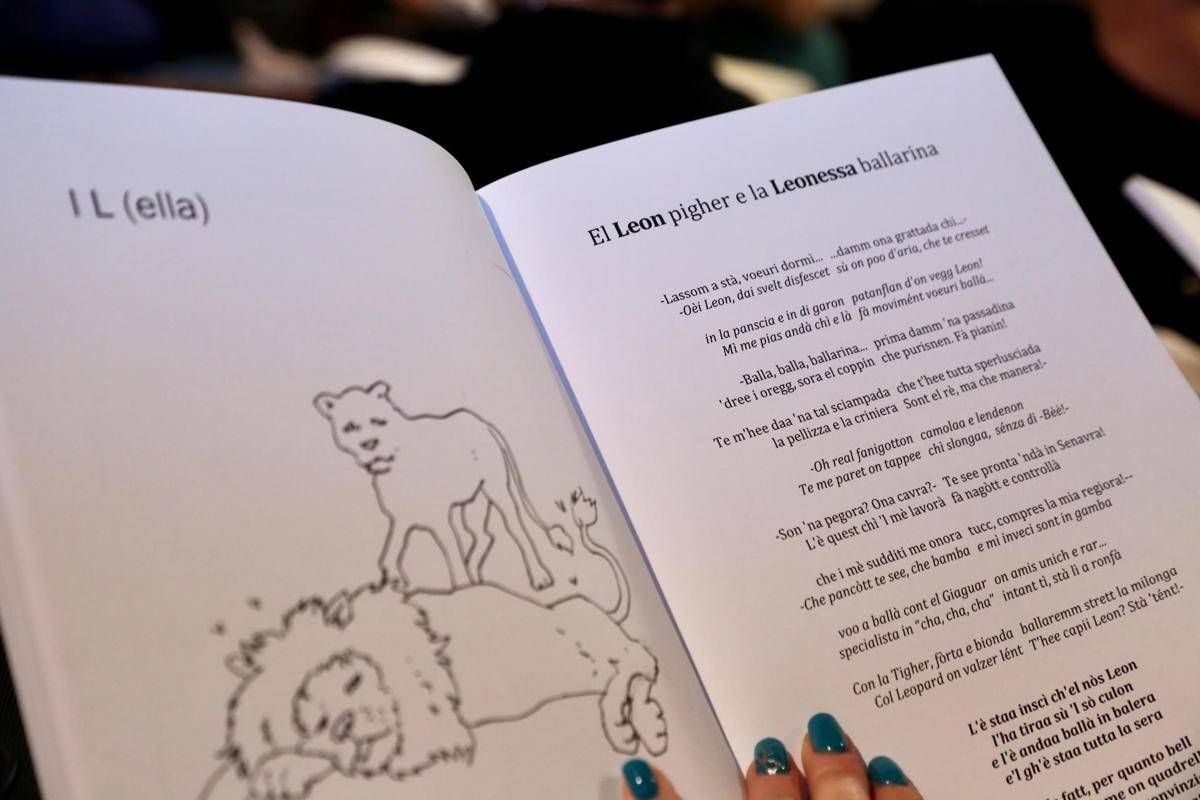 I L (ella)
El Leon pigher e la Leonessa ballarina
-Lassom a stà, voeuri dormì... ...damm ona grattada chì...-
-Oèi Leon, dai svelt disfescet sù on poo d'aria, che te cresset
in la panscia e in di garon patanflan d'on vegg Leon!
Mì me pias andà chì e là fà movimént voeuri ballà...
-Balla, balla, ballarina... prima damm 'na passadina
'dree i oregg, sora el coppin che purisnen. Fà pianin!
Te m'hee daa 'na tal sciampada che t'hee tutta sperlusciada
la pellizza e la criniera Sont el rè, ma che manera!-
-Oh real fanigotton camolaa e lendenon
Te me paret on tappee chì slongaa, sénza dì -Bèè!-
-Son 'na pegora? Ona cavra?- Te see pronta 'ndà in Senavra!
L'è quest chì 'l mè lavorà fà nagòtt e controllà
che i mè sudditi me onora tucc, compres la mia regiora!--
-Che pancòtt te see, che bamba e mi inveci sont in gamba
voo a ballà cont el Giaguar on amis unich e rar...
specialista in "cha, cha, cha" intant ti, stà lì a ronfà
Con la Tigher, fòrta e bionda ballaremm strett la milonga
Col Leopard on valzer lént T'hee capii Leon? Stà 'tént!-
L'è staa inscì ch'el nòs Leon
l'ha tiraa sù 'l sò culon
e l'è andaa ballà in balera
e'l gh'è staa tutta la sera
fatt, per quanto bell
me on quadrell